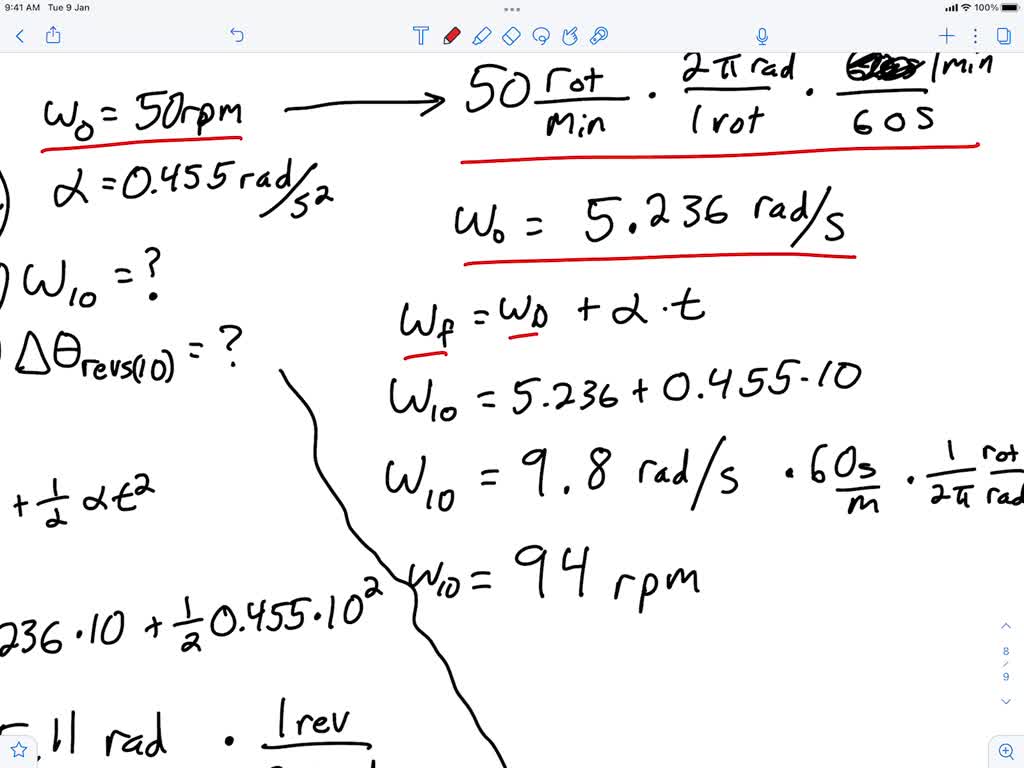 9:41 AM Tue 9 Jan
100%
ω₀ = 50rpm
50 rot/min · 2π rad/1 rot · 1min/60s
α = 0.455 rad/s²
ω₀ = 5.236 rad/s
ω₁₀ = ?
Δθrevs(10) = ?
ωf = ω₀ + α · t
ω₁₀ = 5.236 + 0.455·10
ω₁₀ = 9.8 rad/s · 60s/m · 1/2π rot/rad
+ 1/2 αt²
ω₁₀ = 94 rpm
236·10 + 1/2 0.455·10²
.11 rad · 1rev
8
/
9